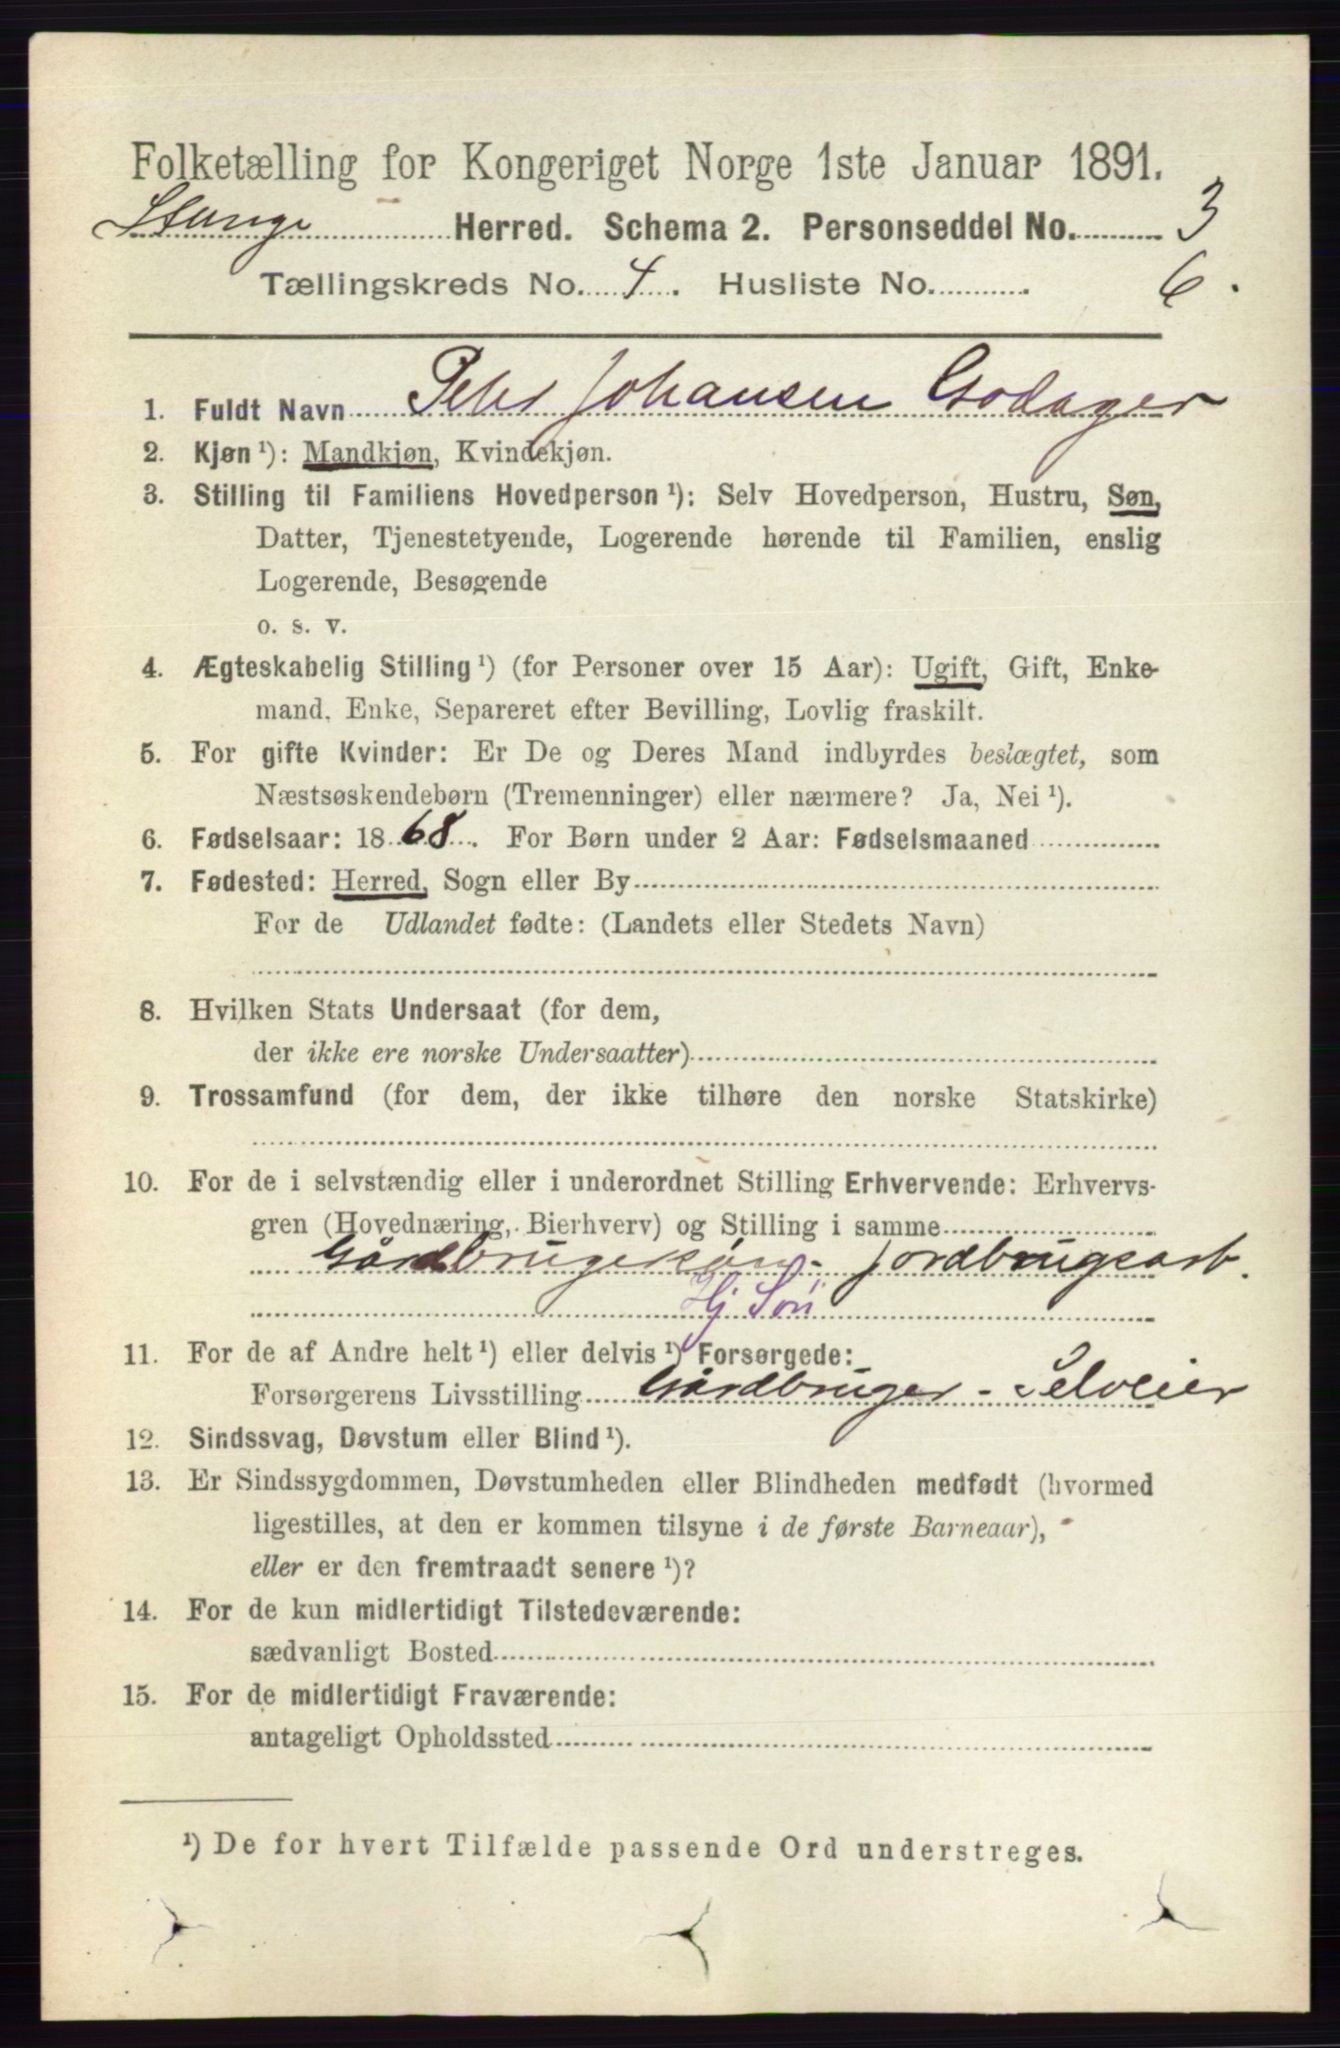 Folketælling for Kongeriget Norge 1ste Januar 1891.
Stange Herred. Schema 2. Personseddel No. 3
Tællingskreds No. 4. Husliste No. 6.
1. Fuldt Navn Peter Johansen Godager
2. Kjøn¹): Mandkjøn, Kvindekjøn.
3. Stilling til Familiens Hovedperson¹): Selv Hovedperson, Hustru, Søn,
Datter, Tjenestetyende, Logerende hørende til Familien, enslig
Logerende, Besøgende
o. s. v.
4. Ægteskabelig Stilling¹) (for Personer over 15 Aar): Ugift, Gift, Enke-
mand, Enke, Separeret efter Bevilling, Lovlig fraskilt.
5. For gifte Kvinder: Er De og Deres Mand indbyrdes beslægtet, som
Næstsøskendebørn (Tremenninger) eller nærmere? Ja, Nei¹).
6. Fødselsaar: 1868. For Børn under 2 Aar: Fødselsmaaned
7. Fødested: Herred, Sogn eller By
For de Udlandet fødte: (Landets eller Stedets Navn)
8. Hvilken Stats Undersaat (for dem,
der ikke ere norske Undersaatter)
9. Trossamfund (for dem, der ikke tilhøre den norske Statskirke)
10. For de i selvstændig eller i underordnet Stilling Erhvervende: Erhvervs-
gren (Hovednæring, Bierhverv) og Stilling i samme
Gårdbrugersøn - jordbrugsarb.
Hj Søn
11. For de af Andre helt¹) eller delvis¹) Forsørgede:
Forsørgerens Livsstilling Gårdbruger - Selveier
12. Sindssvag, Døvstum eller Blind¹).
13. Er Sindssygdommen, Døvstumheden eller Blindheden medfødt (hvormed
ligestilles, at den er kommen tilsyne i de første Barneaar),
eller er den fremtraadt senere¹)?
14. For de kun midlertidigt Tilstedeværende:
sædvanligt Bosted
15. For de midlertidigt Fraværende:
antageligt Opholdssted
¹) De for hvert Tilfælde passende Ord understreges.